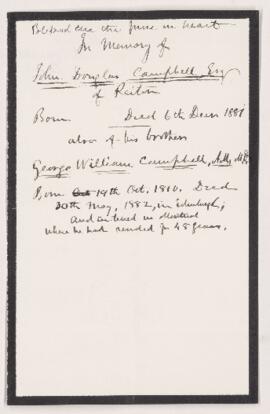 the in
In Memory of
John Douglas Campbell, Esq
of
Born Died 6th Decr 1881
also of his brother
George William Campbell,
Born 19th Oct. 1810. Died
30th May, 1882, in Edinburgh,
and interred in
where he had resided for 48 years.